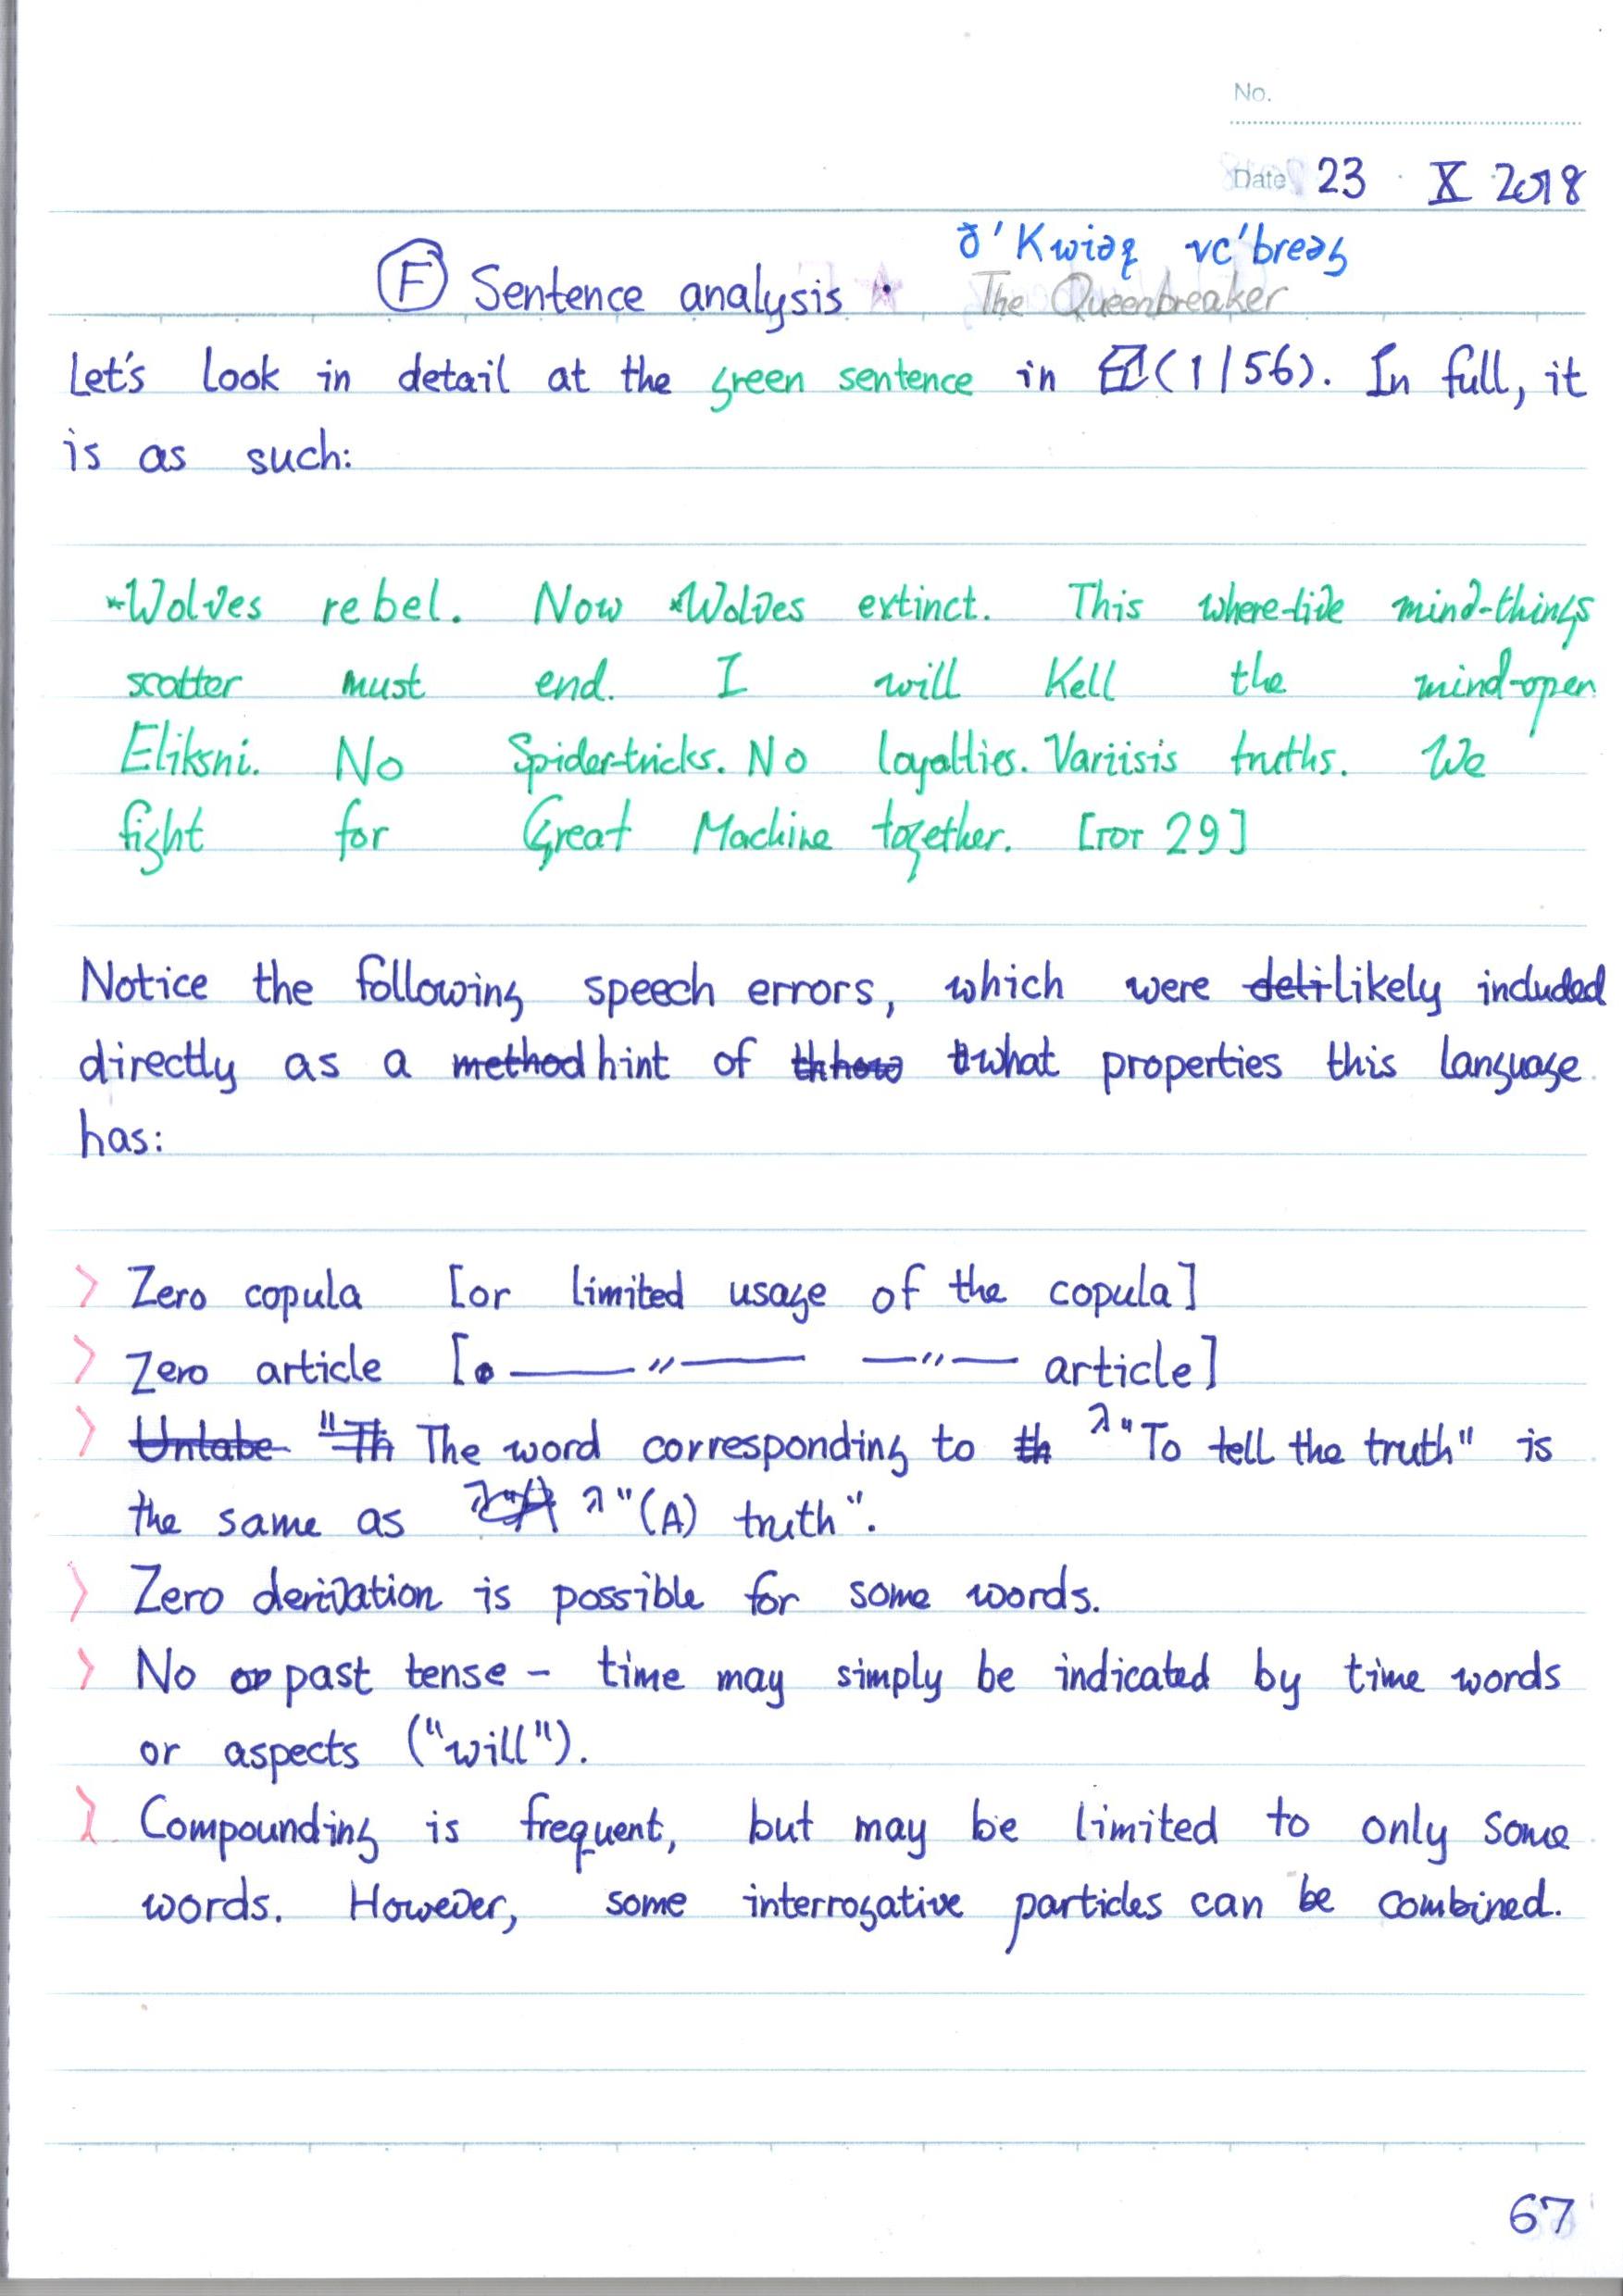 No.
Date 23 · X 2018
ð'Kwiəʐ vc'breəɧ
Ⓕ Sentence analysis The Queenbreaker
Let's look in detail at the green sentence in (1/56). In full, it
is as such:
*Wolves rebel. Now *Wolves extinct. This where-live mind-things
scatter must end. I will Kell the mind-open
Eliksni. No Spider-tricks. No loyalties. Variisis truths. We
fight for Great Machine together. [TOT 29]
Notice the following speech errors, which were deli likely included
directly as a method hint of what properties this language
has:
> Zero copula [or limited usage of the copula]
> Zero article [ ——〃—— —〃— article]
> Unlabe "Th The word corresponding to th λ"To tell the truth" is
the same as λ"(A) truth".
> Zero derivation is possible for some words.
> No or past tense – time may simply be indicated by time words
or aspects ("will").
> Compounding is frequent, but may be limited to only some
words. However, some interrogative particles can be combined.
67